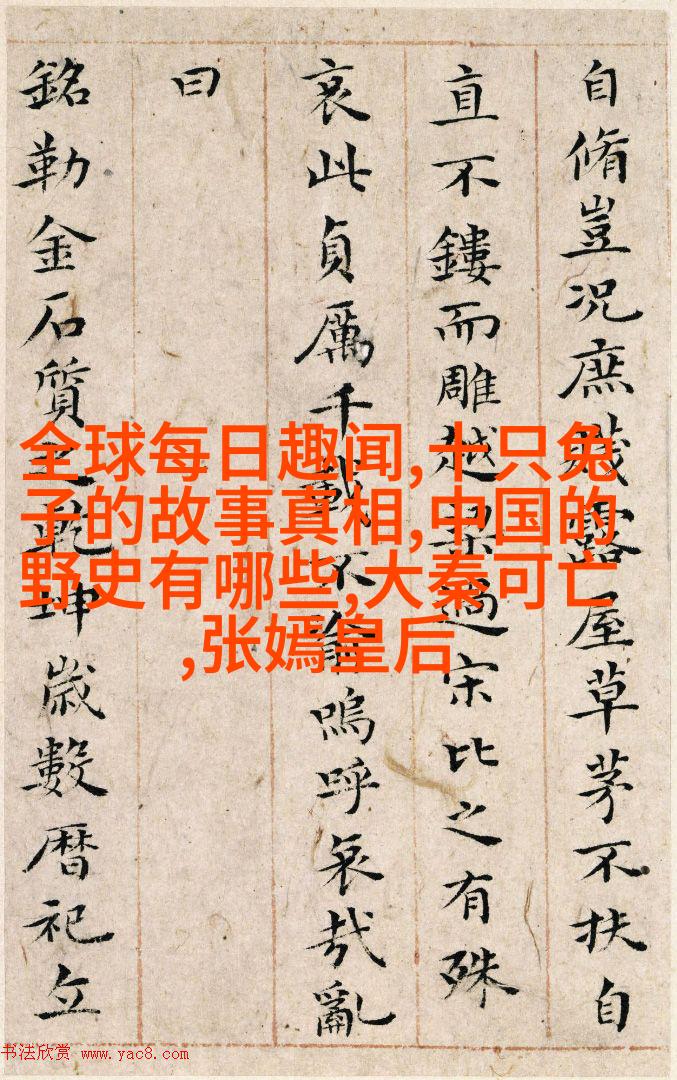 自脩豈况庶賤露屋草茅不扶自
直不鏤而雕越梁過宋比之有殊
哀此貞厲千載不渝嗚呼哀哉亂
曰
銘勒金石質之乾坤歲數暦祀立
全球每日趣闻,十只兔
子的故事真相,中国的
野史有哪些,大秦可亡
,张嫣皇后
书法欣赏 www.yac8.com